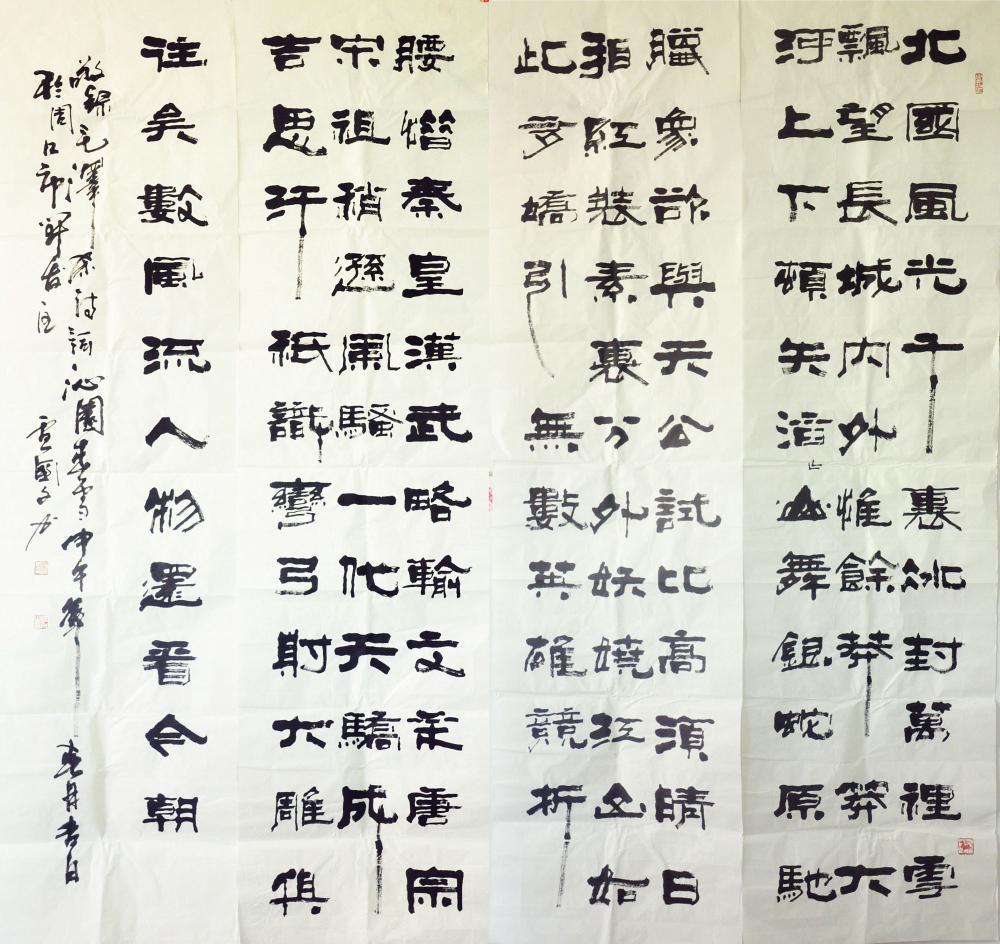 北國風光千裏冰封萬裡雪
飄望長城內外惟餘莽莽大
河上下頓失滔々山舞銀蛇原馳
臘象欲與天公試比高須晴日
看紅裝素裹分外妖嬈江山如
此多嬌引無數英雄競折
腰惜秦皇漢武略輸文采唐宗
宋祖稍遜風騷一代天驕成
吉思汗祇識彎弓射大雕俱
往矣數風流人物還看今朝
敬錄毛澤東詩詞沁園春雪甲午年春月吉日
於周口市